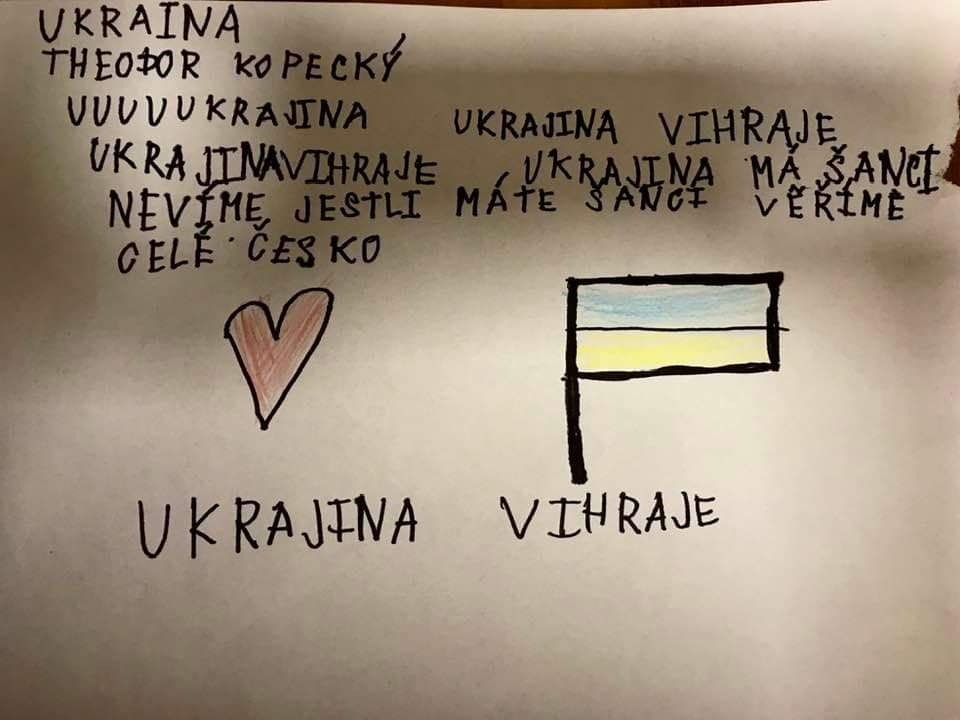 UKRAINA
THEODOR KOPECKÝ
UUUUUKRAJINA UKRAJINA VIHRAJE
UKRAJINAVIHRAJE UKRAJINA MÁ ŠANCI
NEVÍME JESTLI MÁTE ŠANCI VĚŘÍME
CELÉ ČESKO
UKRAJINA VIHRAJE